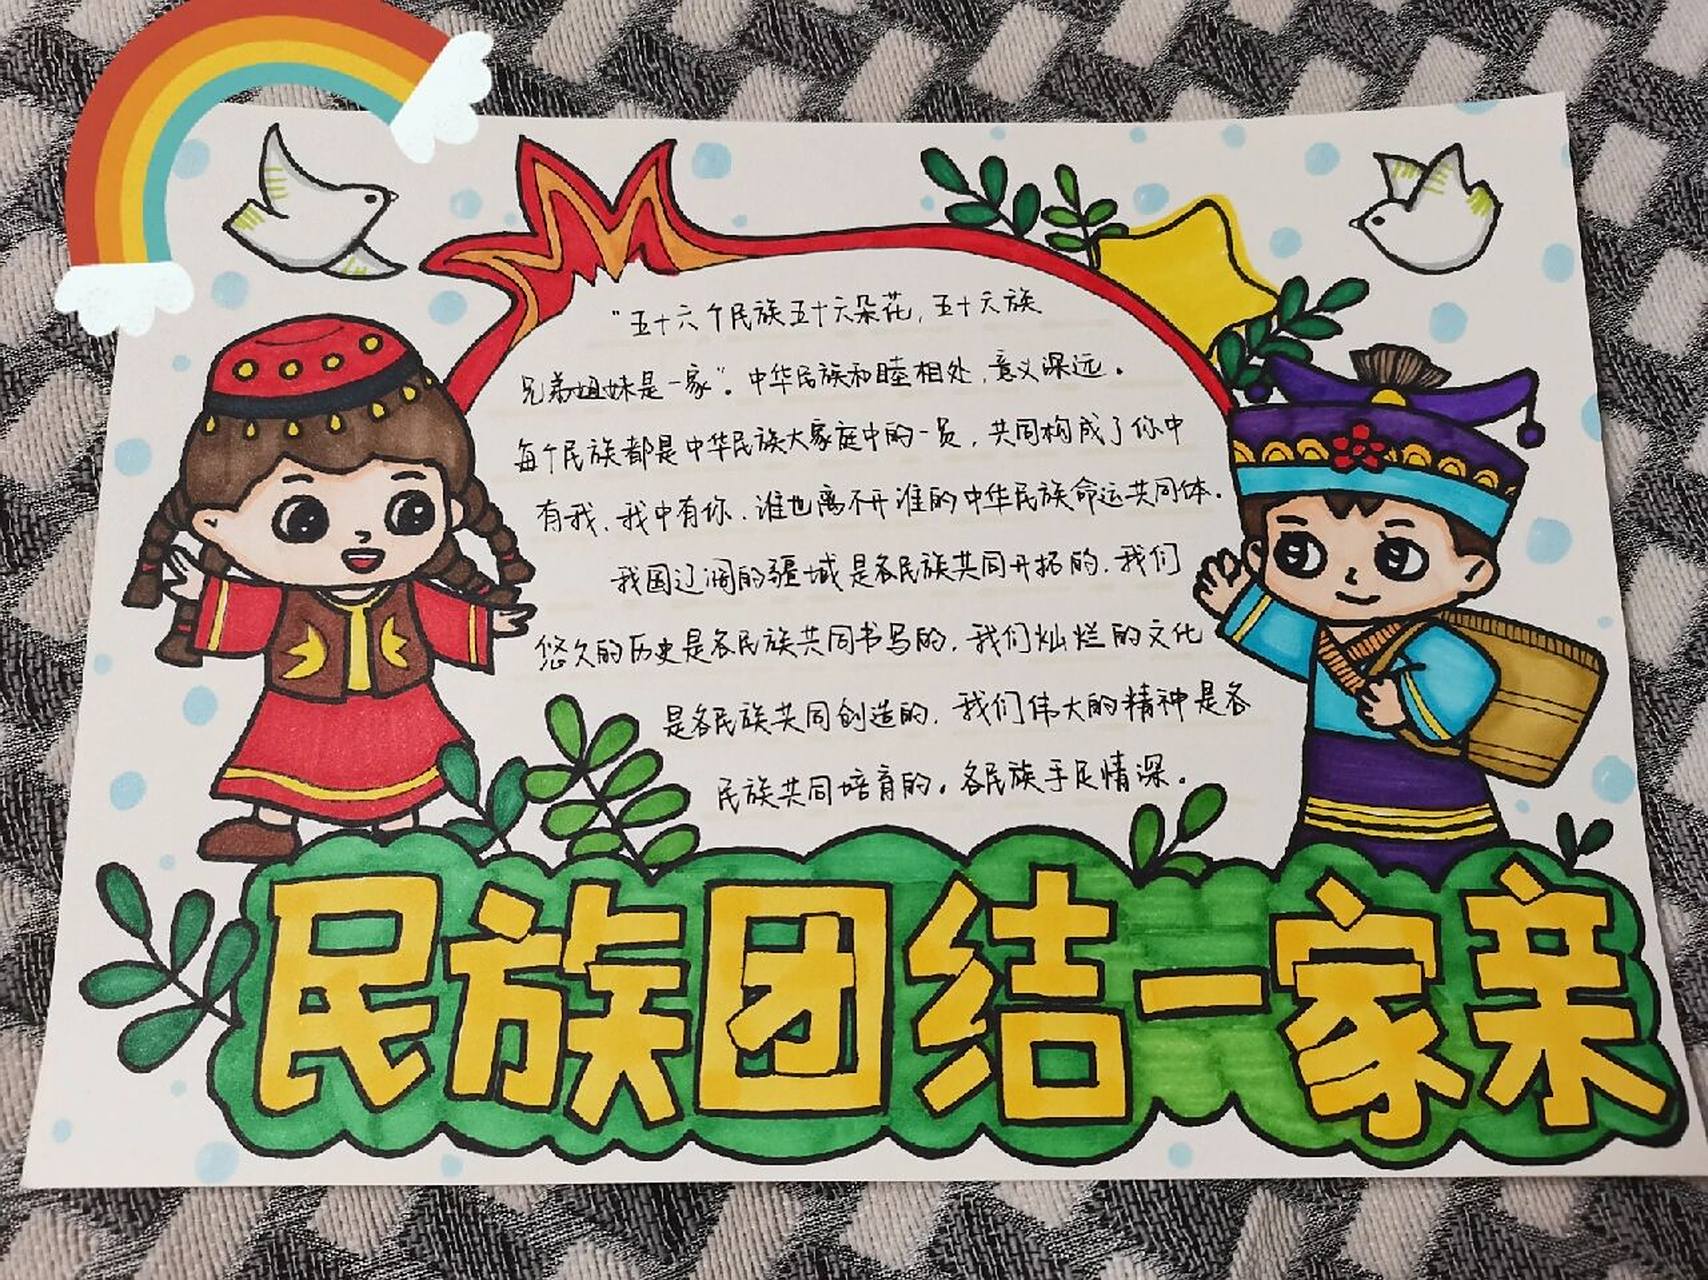 “五十六个民族五十六朵花，五十六族
兄弟姐妹是一家”。中华民族和睦相处，意义深远。
每个民族都是中华民族大家庭中的一员，共同构成了你中
有我、我中有你、谁也离不开谁的中华民族命运共同体。
我国辽阔的疆域是各民族共同开拓的，我们
悠久的历史是各民族共同书写的，我们灿烂的文化
是各民族共同创造的，我们伟大的精神是各
民族共同培育的。各民族手足情深。
民族团结一家亲